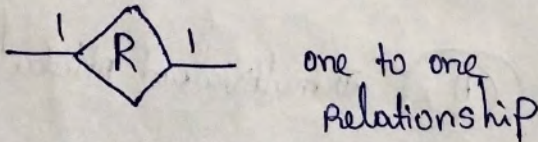 1 R 1 one to one
Relationship